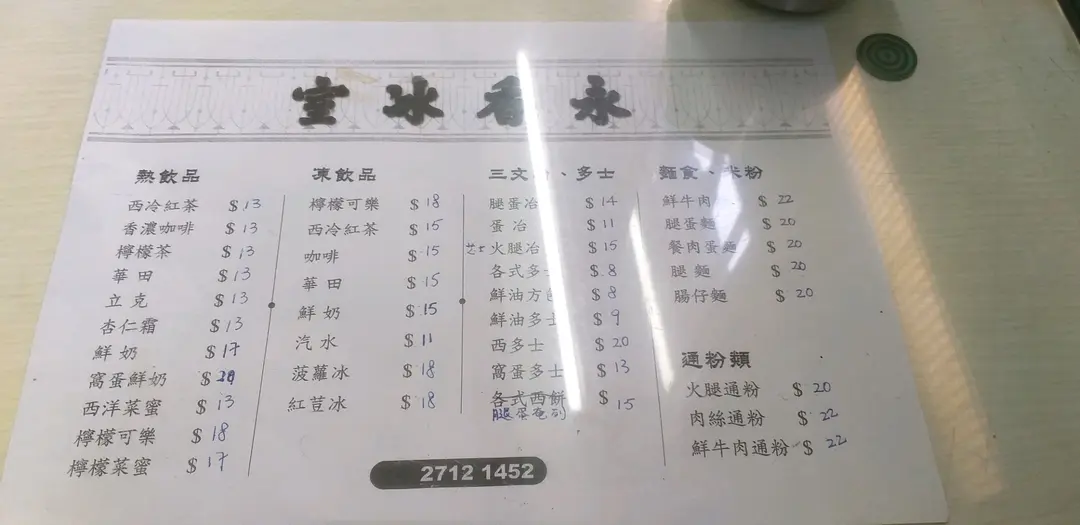 永香冰室
熱飲品
西冷紅茶 $13
香濃咖啡 $13
檸檬茶 $13
華田 $13
立克 $13
杏仁霜 $13
鮮奶 $17
窩蛋鮮奶 $20
西洋菜蜜 $13
檸檬可樂 $18
檸檬菜蜜 $17
凍飲品
檸檬可樂 $18
西冷紅茶 $15
咖啡 $15
華田 $15
鮮奶 $15
汽水 $11
菠蘿冰 $18
紅荳冰 $18
三文治、多士
腿蛋冶 $14
蛋冶 $11
芝士火腿冶 $15
各式多士 $8
鮮油方包 $8
鮮油多士 $9
西多士 $20
窩蛋多士 $13
各式西餅 $15
腿蛋奄列
麵食、米粉
鮮牛肉 $22
腿蛋麵 $20
餐肉蛋麵 $20
腿麵 $20
腸仔麵 $20
通粉類
火腿通粉 $20
肉絲通粉 $22
鮮牛肉通粉 $22
2712 1452